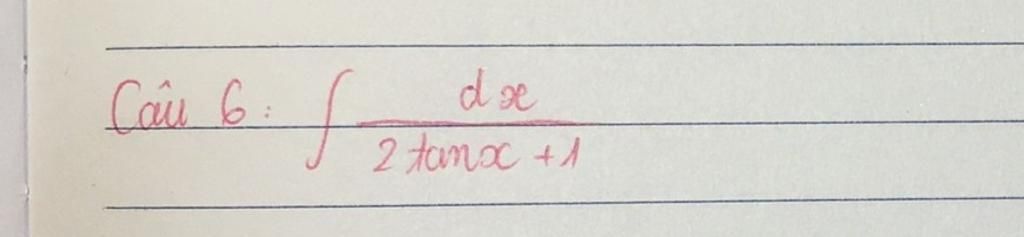 Câu 6: ∫ dx / (2tanx + 1)